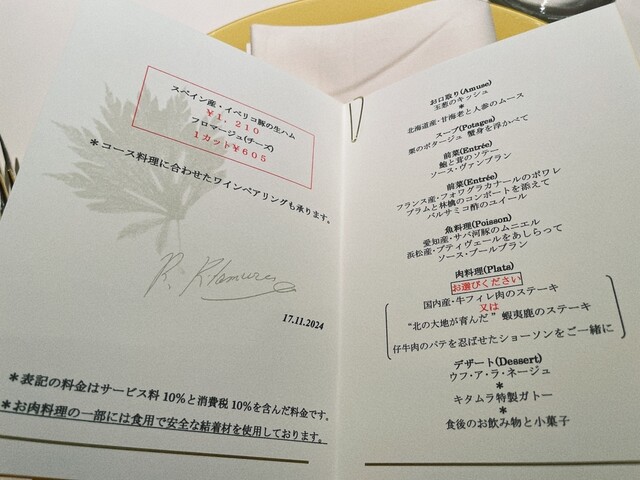 スペイン産・イベリコ豚の生ハム
￥1,210
フロマージュ(チーズ)
1カット￥605
＊コース料理に合わせたワインペアリングも承ります。
17.11.2024
＊表記の料金はサービス料10%と消費税10%を含んだ料金です。
＊お肉料理の一部には食用で安全な結着材を使用しております。
お口取り(Amuse)
玉葱のキッシュ
＊
北海道産・甘海老と人参のムース
スープ(Potages)
栗のポタージュ 蟹身を浮かべて
前菜(Entrée)
鮑と茸のソテー
ソース・ヴァンブラン
前菜(Entrée)
フランス産・フォワグラカナールのポワレ
プラムと林檎のコンポートを添えて
バルサミコ酢のユイール
魚料理(Poisson)
愛知産・サバ河豚のムニエル
浜松産・プティヴェールをあしらって
ソース・ブールブラン
肉料理(Plats)
お選びください
国内産・牛フィレ肉のステーキ
又は
“北の大地が育んだ” 蝦夷鹿のステーキ
仔牛肉のパテを忍ばせたショーソンをご一緒に
デザート(Dessert)
ウフ・ア・ラ・ネージュ
＊
キタムラ特製ガトー
＊
食後のお飲み物と小菓子